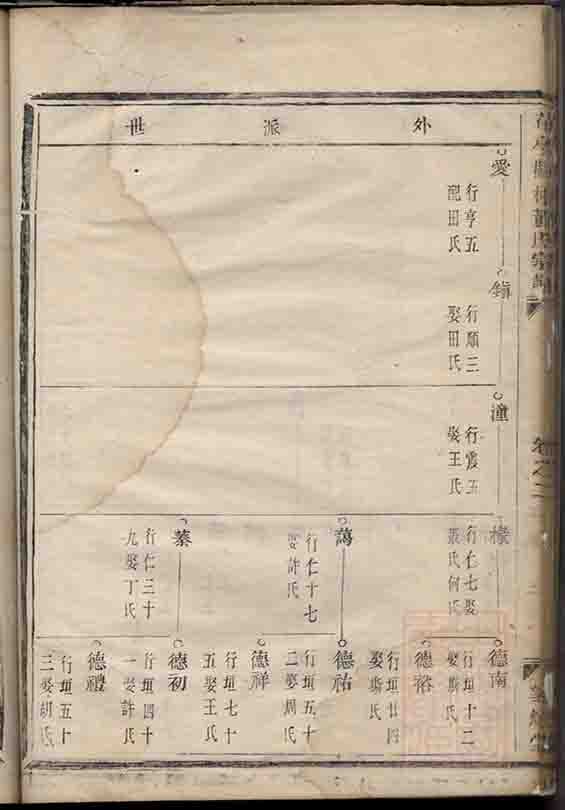 外派世
愛
行亨五
配田氏
鎮
行順三
娶田氏
潼
行震五
娶王氏
行仁七娶
張氏何氏
藹
行仁十七
娶許氏
蓁
行仁三十
九娶丁氏
德南
行垣十二
娶斯氏
德裕
行垣廿四
娶斯氏
德祐
行垣五十
二娶周氏
德祥
行垣七十
五娶王氏
德初
行垣四十
一娶許氏
德禮
行垣五十
三娶胡氏
卷之二